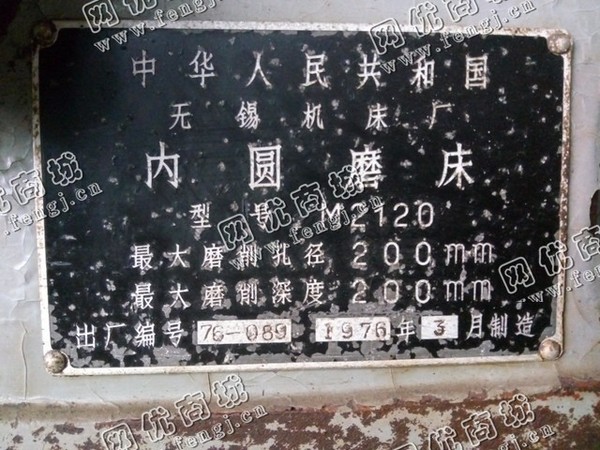 中华人民共和国
无锡机床厂
内圆磨床
型号 M2120
最大磨削孔径 200mm
最大磨削深度 200mm
出厂编号 76-089 1976年 3月制造
网优商城
www.fengj.cn
网优商城
www.fengj.cn
网优商城
www.fengj.cn
网优商城
www.fengj.cn
网优商城
www.fengj.cn
网优商城
www.fengj.cn